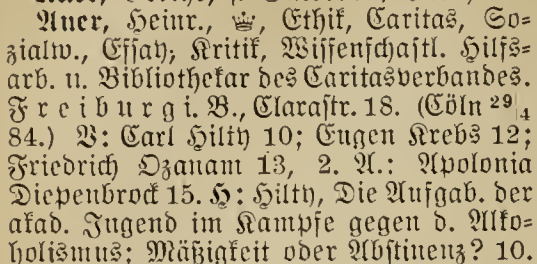 Auer, Heinr., ♕, Ethik, Caritas, So=
zialw., Essay; Kritik, Wissenschaftl. Hilfs=
arb. u. Bibliothekar des Caritasverbandes.
Freiburg i. B., Clarastr. 18. (Cöln 29|4
84.) V: Carl Hilty 10; Eugen Krebs 12;
Friedrich Ozanam 13, 2. A.: Apolonia
Diepenbrock 15. H: Hilty, Die Aufgab. der
akad. Jugend im Kampfe gegen d. Alko=
holismus: Mäßigkeit oder Abstinenz? 10.